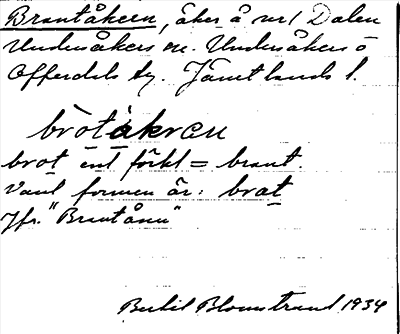 Brantåkern, åker å nr 1 Dalen
Undersåkers sn. Undersåkers o
Offerdals tg. Jämtlands l.
bròtákren
brot enl förkl = brant.
Vanl formen är: brat
Jfr. "Brantånn"
Bertil Blomstrand 1934